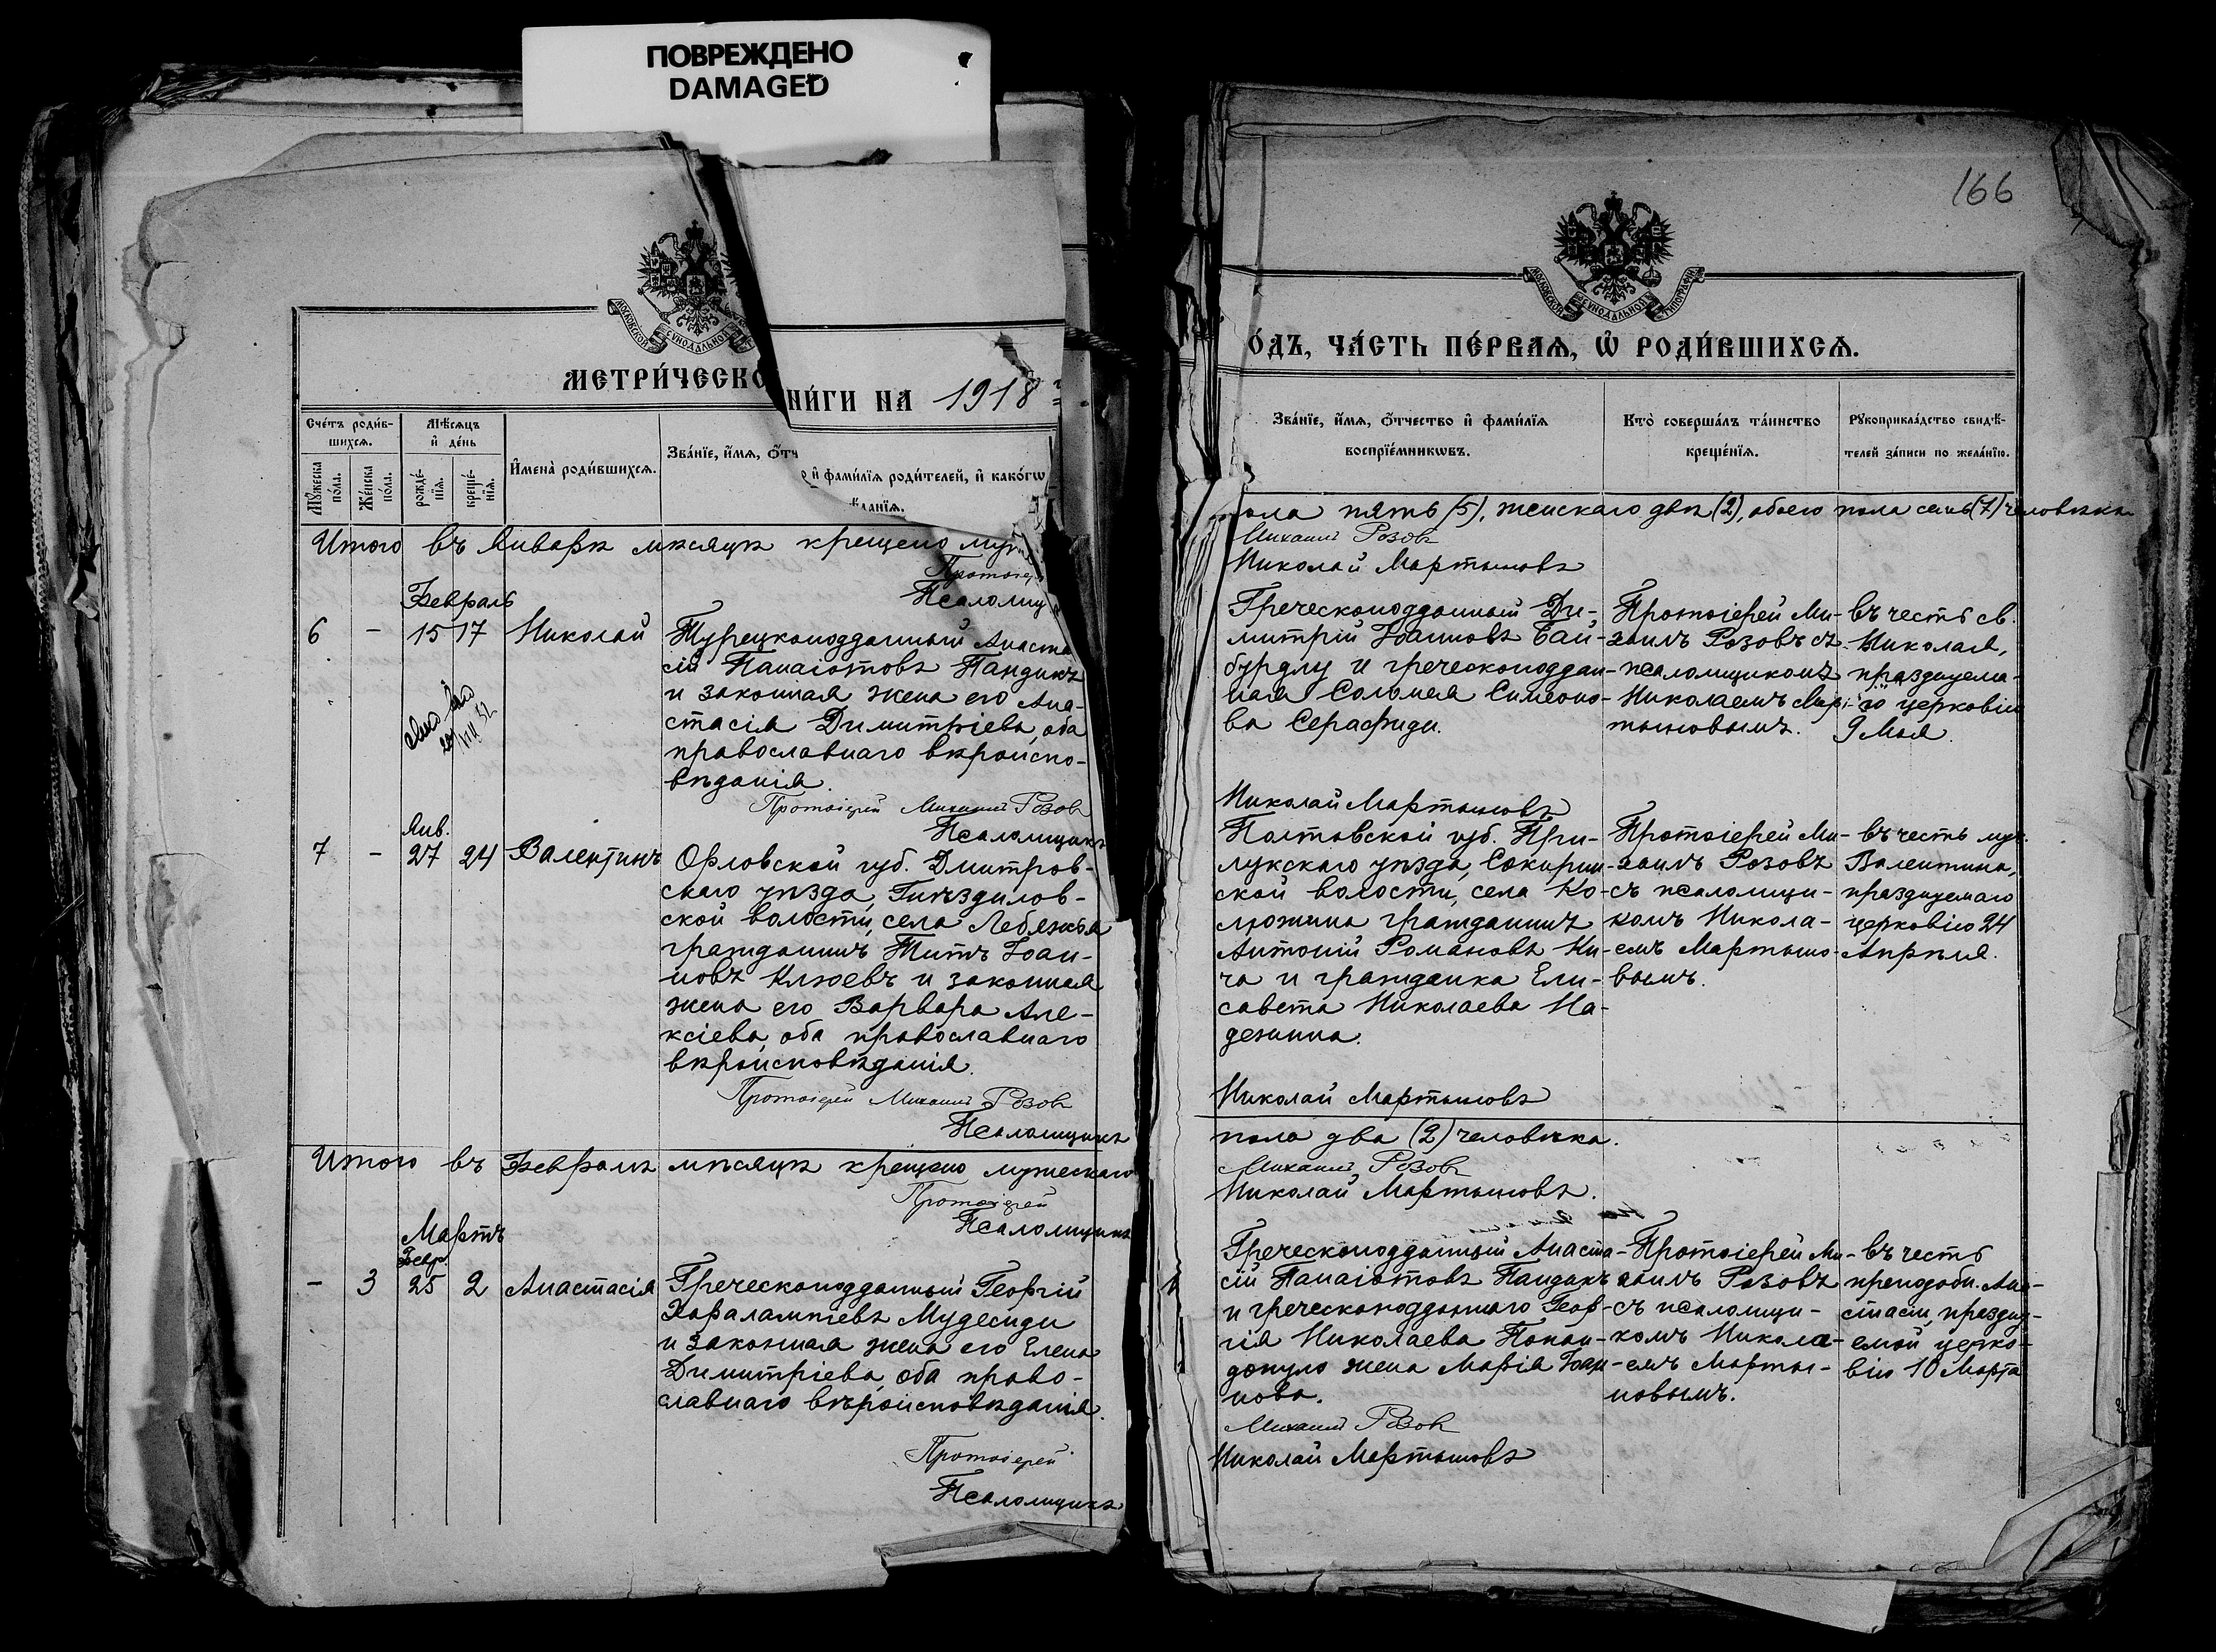 ПОВРЕЖДЕНО
DAMAGED
МОСКОВСКОЙ СѴНОДАЛЬНОЙ
МЕТРИ́ЧЕСКО
НИ́ГИ НА 1918
Сче́тъ роди́в-
шихсѧ.
Мѣ́сѧцъ
и҆ де́нь
И҆мена̀ роди́вшихсѧ.
Зва́нїе, и҆́мѧ, ѻ҆́тч
и҆ фами́лїѧ роди́телей, и҆ како́гѡ
ѣданїѧ.
Мꙋ́жеска по́ла.
Же́нска по́ла.
рожде́-
нїѧ.
креще́-
нїѧ.
Итого въ Январѣ мѣсяцѣ крещено муж
Протоіер
Псаломщ
Февраль
6 - 15 17 Николай
Турецкоподданный Анаста
сій Панаіотовъ Пандикъ
и законная жена его Ана-
стасія Димитріева, оба
православнаго вѣроиспо-
вѣданія.
Протоіерей Михаилъ Розовъ
Псаломщикъ
Янв.
7 - 27 24 Валентинъ
Орловской губ. Дмитров-
скаго уѣзда, Гнѣздилов-
ской волости, села Лебяжья
гражданинъ Титъ Іоан-
новъ Клюевъ и законная
жена его Варвара Але-
ксіева, оба православнаго
вѣроисповѣданія.
Протоіерей Михаилъ Розовъ
Псаломщикъ
Итого въ Февралѣ мѣсяцѣ крещено мужескаго
Протоіерей
Псаломщикъ
Мартъ
Февр.
- 3 25 2 Анастасія
Греческоподданный Георгій
Харалампіевъ Мудесиди
и законная жена его Елена
Димитріева, оба право-
славнаго вѣроисповѣданія.
Протоіерей
Псаломщикъ
166
МОСКОВСКОЙ СѴНОДАЛЬНОЙ ТИПОГРАФІИ
О́ДЪ, ЧА́СТЬ ПЕ́РВАѦ, Ѽ РОДИ́ВШИХСѦ.
Зва́нїе, и҆́мѧ, ѻ҆́тчество и҆ фами́лїѧ
воспрїе́мникѡвъ.
Кто̀ соверша́лъ та́инство
креще́нїѧ.
Рꙋкоприкла́дство свидѣ́-
телей за́писи по жела́нїю.
пола пять (5), женскаго два (2), обоего пола семь (7) человѣкъ
Михаилъ Розовъ
Николай Мартыновъ
Греческоподданный Ди-
митрій Іоанновъ Бай-
бурдлу и греческоподдан-
ная Соломея Симеоно-
ва Серафиди.
Протоіерей Ми-
хаилъ Розовъ съ
псаломщикомъ
Николаемъ Мар-
тыновымъ.
въ честь св.
Николая,
празднуема-
го церковію
9 Мая.
Николай Мартыновъ
Полтавской губ. При-
лукскаго уѣзда, Сокирин-
ской волости, села Ко-
люжина гражданинъ
Антоній Романовъ Ки-
ча и гражданка Ели-
савета Николаева На-
дежина.
Протоіерей Ми-
хаилъ Розовъ
съ псаломщи-
комъ Никола-
емъ Мартыно-
вымъ.
въ честь муч.
Валентина,
празднуемаго
церковію 24
Апрѣля.
Николай Мартыновъ
пола два (2) человѣка.
Михаилъ Розовъ
Николай Мартыновъ.
Греческоподданный Анаста-
сій Панаіотовъ Пандакъ
и греческоподданнаго Геор-
гія Николаева Попан-
допуло жена Марія Іоан-
нова.
Протоіерей Ми-
хаилъ Розовъ
съ псаломщи-
комъ Никола-
емъ Марты-
новымъ.
въ честь
преподобн. Ана-
стасіи, праздну-
емой церко-
вію 10 Марта
Михаилъ Розовъ
Николай Мартыновъ